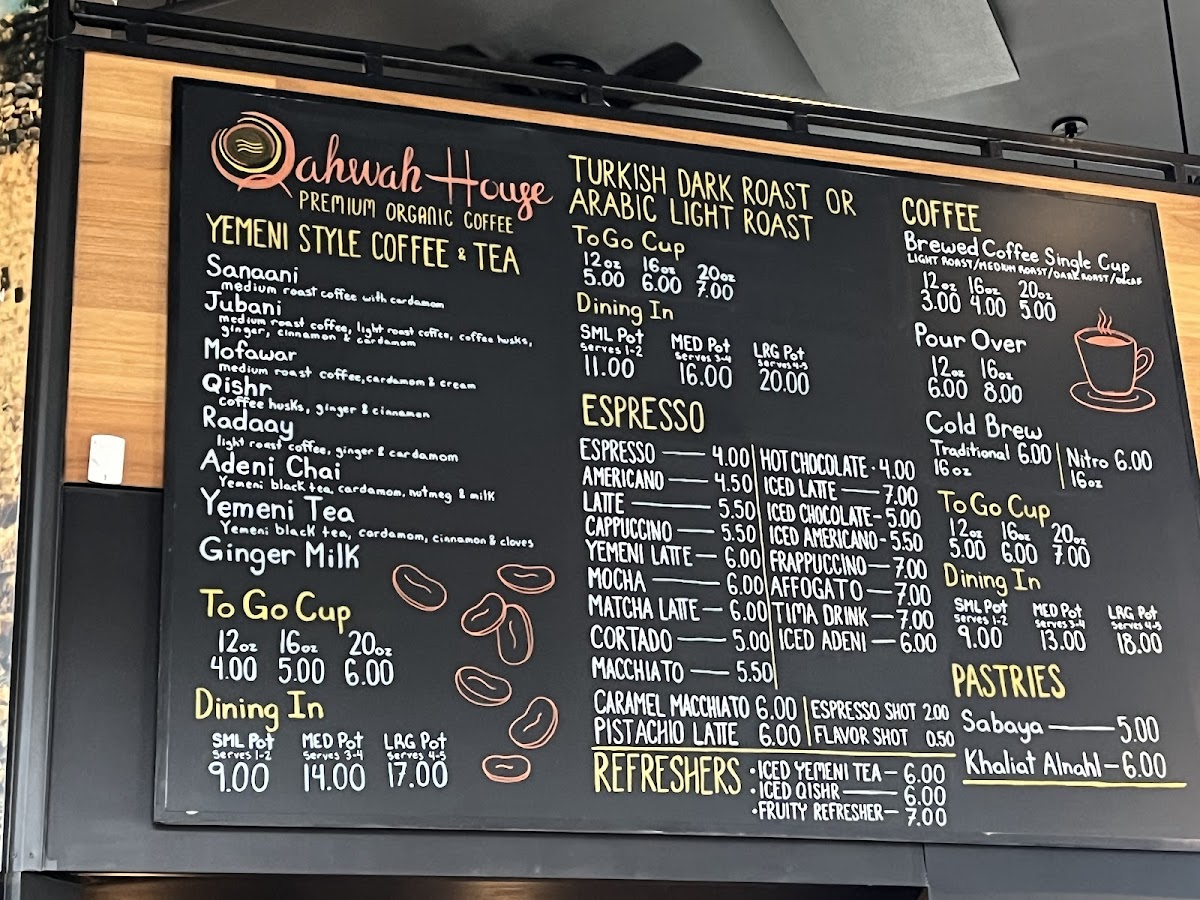 Qahwah House
PREMIUM ORGANIC COFFEE
YEMENI STYLE COFFEE & TEA
Sanaani
medium roast coffee with cardamom
Jubani
medium roast coffee, light roast coffee, coffee husks,
ginger, cinnamon & cardamom
Mofawar
medium roast coffee, cardamom & cream
Qishr
coffee husks, ginger & cinnamon
Radaay
light roast coffee, ginger & cardamom
Adeni Chai
Yemeni black tea, cardamom, nutmeg & milk
Yemeni Tea
Yemeni black tea, cardamom, cinnamon & cloves
Ginger Milk
To Go Cup
12oz 16oz 20oz
4.00 5.00 6.00
Dining In
SML Pot MED Pot LRG Pot
Serves 1-2 Serves 3-4 Serves 4-5
9.00 14.00 17.00
TURKISH DARK ROAST OR
ARABIC LIGHT ROAST
To Go Cup
12oz 16oz 20oz
5.00 6.00 7.00
Dining In
SML Pot MED Pot LRG Pot
Serves 1-2 Serves 3-4 Serves 4-5
11.00 16.00 20.00
ESPRESSO
ESPRESSO — 4.00
AMERICANO — 4.50
LATTE — 5.50
CAPPUCCINO — 5.50
YEMENI LATTE — 6.00
MOCHA — 6.00
MATCHA LATTE — 6.00
CORTADO — 5.00
MACCHIATO — 5.50
CARAMEL MACCHIATO 6.00
PISTACHIO LATTE 6.00
HOT CHOCOLATE - 4.00
ICED LATTE — 7.00
ICED CHOCOLATE - 5.00
ICED AMERICANO - 5.50
FRAPPUCCINO — 7.00
AFFOGATO — 7.00
TIMA DRINK — 7.00
ICED ADENI — 6.00
ESPRESSO SHOT 2.00
FLAVOR SHOT 0.50
REFRESHERS
• ICED YEMENI TEA — 6.00
• ICED QISHR — 6.00
• FRUITY REFRESHER — 7.00
COFFEE
Brewed Coffee Single Cup
LIGHT ROAST/MEDIUM ROAST/DARK ROAST/DECAF
12oz 16oz 20oz
3.00 4.00 5.00
Pour Over
12oz 16oz
6.00 8.00
Cold Brew
Traditional 6.00
16oz
Nitro 6.00
16oz
To Go Cup
12oz 16oz 20oz
5.00 6.00 7.00
Dining In
SML Pot MED Pot LRG Pot
Serves 1-2 Serves 3-4 Serves 4-5
9.00 13.00 18.00
PASTRIES
Sabaya — 5.00
Khaliat Alnahl — 6.00